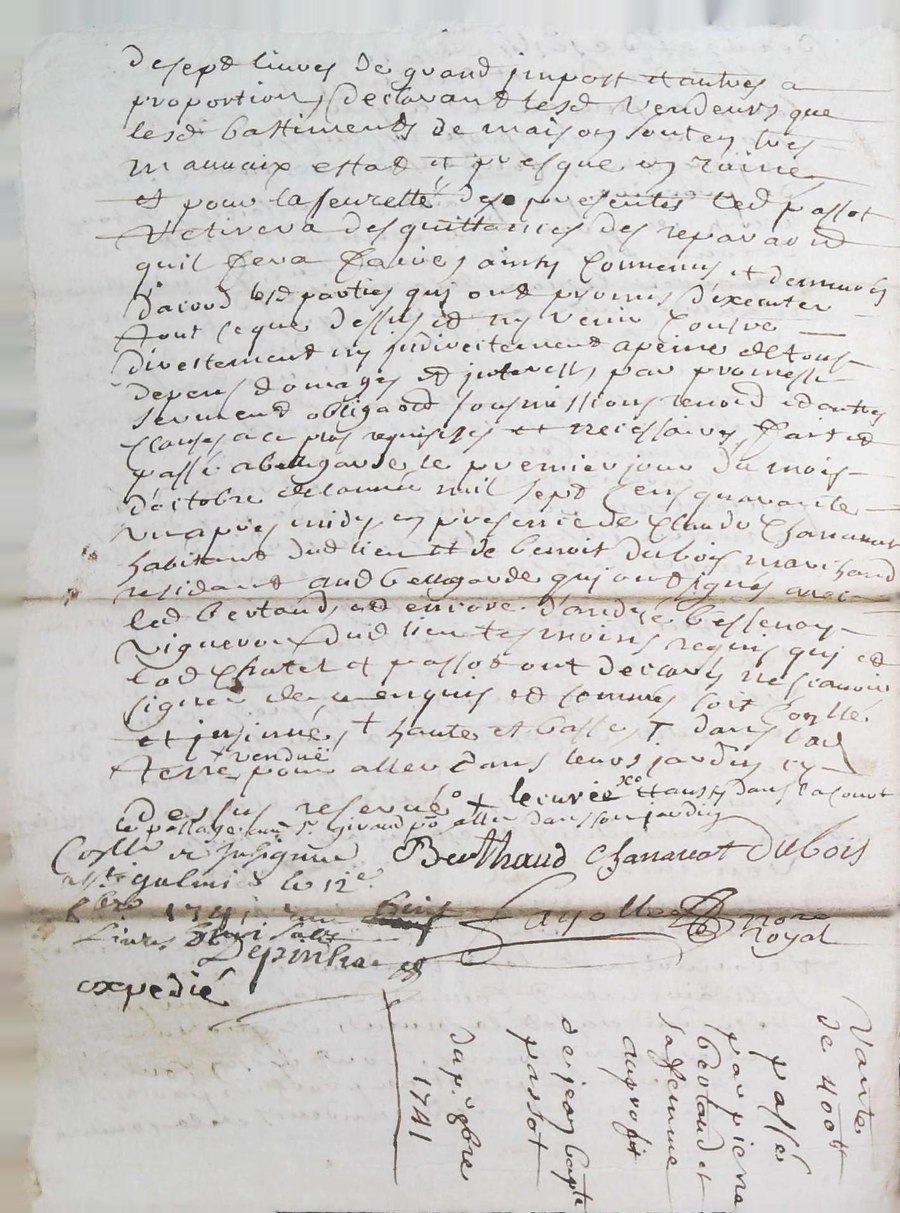 de sept livres de grand impost et autres a
proportion, declarant lesd vendeurs que
lesd bastiments de maison sont en tres
mauvaix estat et presque en ruine
et pour la seuretté des presentes led passot
retirera des quittances des reparaõns
quil fera faire, ainsy convenus et demeurés
d'acord lesd parties qui ont promis d'executer
tout ce que dessus et ny venir contre
directement ny indirectement a peine de tous
depens domages et interests par promesse
serment obligaõn soumissions renonõn et autres
clauses a ce plus requises et necessaires, fait et
passé a bellegarde le premier jour du mois
d'octobre de lannée mil sept cens quarante
un apres midy, en presence de Claude Chanavat
habitant dud lieu et de benoit dubois marchand
residant aud bellegarde qui ont signés avec
led bertaud et encore d'andré bessenay
vigneron dud lieu tesmoins requis qui et
lad Chatel et passot ont declarés ne scavoir
signer de ce enquis et sommés soit conllé
et insinué, + haute et basse + dans lad
terre + vendue pour aller dans leurs jardin cy
dessus reservé + lecurie et aussy dans la court
le passage aud sr. Giraud po aller dans son jardin
Berthaud Chanavat Dubois
Conllé et Insigniné
a St. galmié le 12e
8bre 1741
Livres
Depinha
Cayolle nore royal
expedié
Vante
de 400tt
passé
par piere
bertaud et
sa femme
au profit
de jean bapte
passot
du pr. 8bre
1741